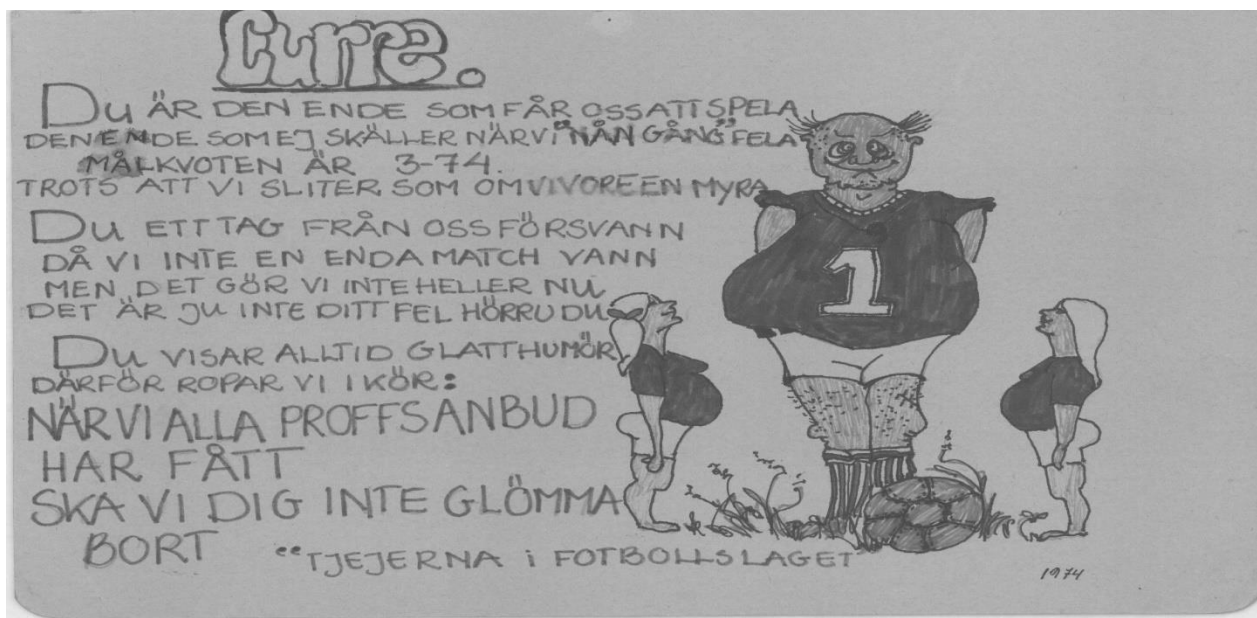 Curre.
DU ÄR DEN ENDE SOM FÅR OSS ATT SPELA
DEN ENDE SOM EJ SKÄLLER NÄR VI "NÅN GÅNG" FELA
MÅLKVOTEN ÄR 3-74.
TROTS ATT VI SLITER SOM OM VI VORE EN MYRA
DU ETT TAG FRÅN OSS FÖRSVANN
DÅ VI INTE EN ENDA MATCH VANN
MEN DET GÖR VI INTE HELLER NU
DET ÄR JU INTE DITT FEL HÖRRU DU
DU VISAR ALLTID GLATT HUMÖR
DÄRFÖR ROPAR VI I KÖR:
NÄR VI ALLA PROFFSANBUD
HAR FÅTT
SKA VI DIG INTE GLÖMMA
BORT
"TJEJERNA i FOTBOLLSLAGET"
1
1974